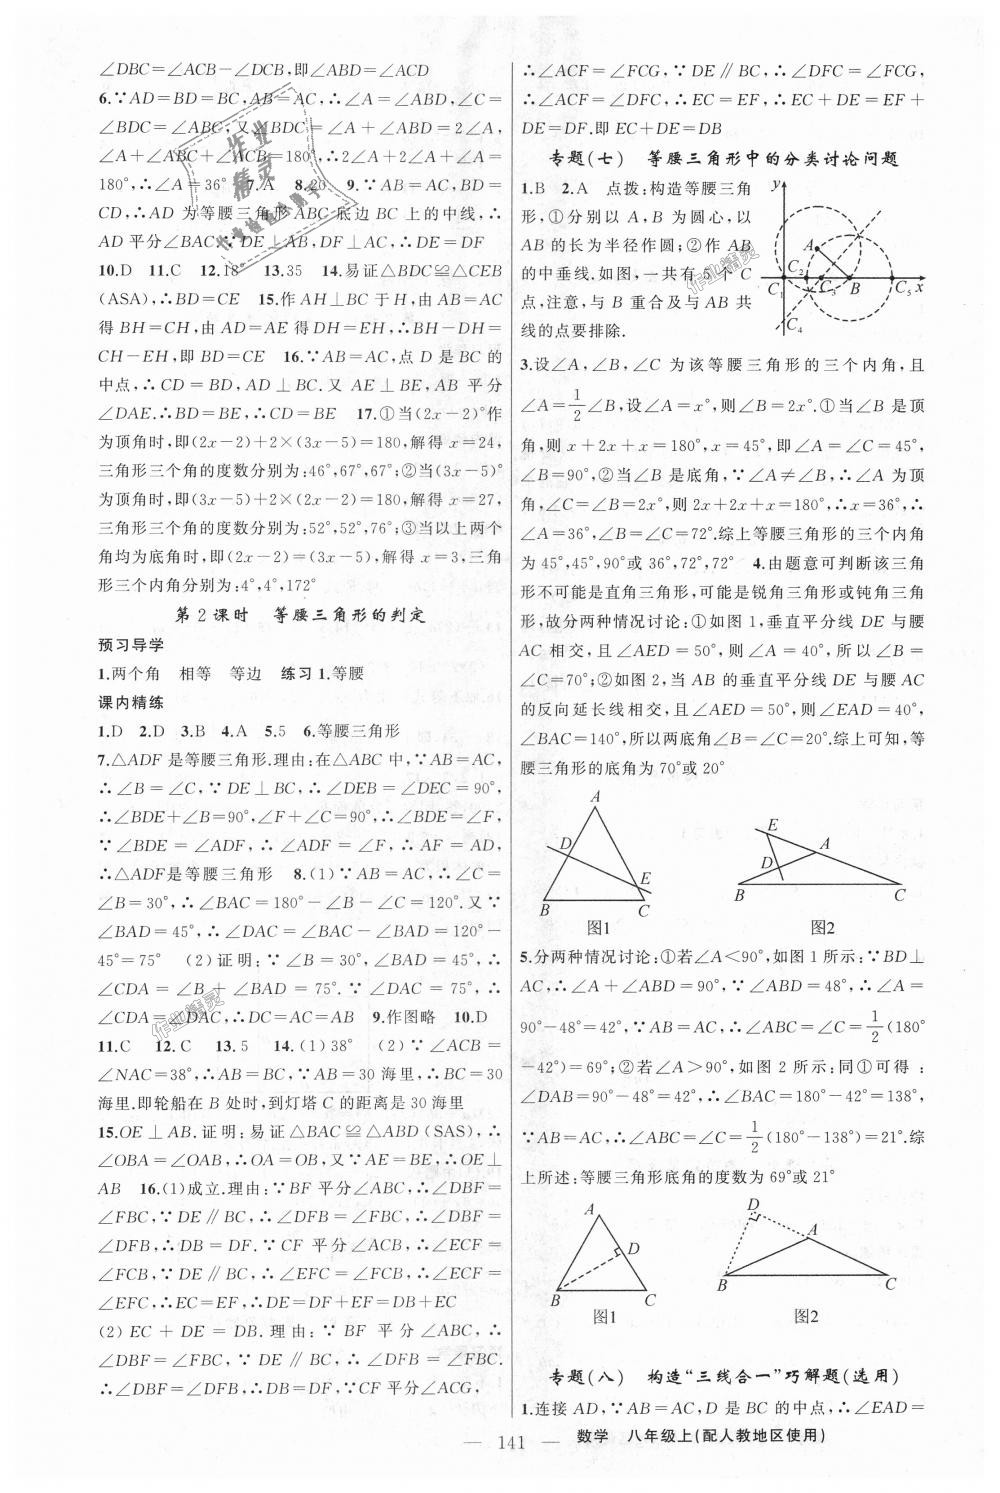 ∠DBC=∠ACB-∠DCB,即∠ABD=∠ACD
6.∵AD=BD=BC,AB=AC,∴∠A=∠ABD,∠C=
∠BDC=∠ABC,又∠BDC=∠A+∠ABD=2∠A,
∠A+∠ABC+∠ACB=180°,∴2∠A+2∠A+∠A=
180°,∴∠A=36° 7.A 8.20 9.∵AB=AC,BD=
CD,∴AD 为等腰三角形 ABC 底边 BC 上的中线,∴
AD 平分∠BAC,∵DE⊥AB,DF⊥AC,∴DE=DF
10.D 11.C 12.18° 13.35 14.易证△BDC≌△CEB
(ASA),∴BD=CE 15.作 AH⊥BC 于 H,由 AB=AC
得 BH=CH,由 AD=AE 得 DH=EH,∴BH-DH=
CH-EH,即 BD=CE 16.∵AB=AC,点 D 是 BC 的
中点,∴CD=BD,AD⊥BC.又 AE⊥BE,AB 平分
∠DAE.∴BD=BE,∴CD=BE 17.①当(2x-2)°作
为顶角时,即(2x-2)+2×(3x-5)=180,解得 x=24,
三角形三个角的度数分别为:46°,67°,67°;②当(3x-5)°
为顶角时,即(3x-5)+2×(2x-2)=180,解得 x=27,
三角形三个角的度数分别为:52°,52°,76°;③当以上两个
角均为底角时,即(2x-2)=(3x-5),解得 x=3,三角
形三个内角分别为:4°,4°,172°
第 2 课时 等腰三角形的判定
预习导学
1.两个角 相等 等边 练习 1.等腰
课内精练
1.D 2.D 3.B 4.A 5.5 6.等腰三角形
7.△ADF 是等腰三角形.理由:在△ABC 中,∵AB=AC,
∴∠B=∠C,∵DE⊥BC,∴∠DEB=∠DEC=90°,
∴∠BDE+∠B=90°,∠F+∠C=90°,∴∠BDE=∠F,
∵∠BDE=∠ADF,∴∠ADF=∠F,∴AF=AD,
∴△ADF是等腰三角形 8.(1)∵AB=AC,∴∠C=
∠B=30°,∴∠BAC=180°-∠B-∠C=120°.又∵
∠BAD=45°,∴∠DAC=∠BAC-∠BAD=120°-
45°=75° (2)证明:∵∠B=30°,∠BAD=45°,∴
∠CDA=∠B+∠BAD=75°.∵∠DAC=75°,∴
∠CDA=∠DAC,∴DC=AC=AB 9.作图略 10.D
11.C 12.C 13.5 14.(1)38° (2)∵∠ACB=
∠NAC=38°,∴AB=BC,∵AB=30 海里,∴BC=30
海里.即轮船在 B 处时,到灯塔 C 的距离是 30 海里
15.OE⊥AB.证明:易证△BAC≌△ABD(SAS),∴
∠OBA=∠OAB,∴OA=OB,又∵AE=BE,∴OE⊥
AB 16.(1)成立.理由:∵BF 平分∠ABC,∴∠DBF=
∠FBC,∵DE∥BC,∴∠DFB=∠FBC,∴∠DBF=
∠DFB,∴DB=DF.∵CF 平分∠ACB,∴∠ECF=
∠FCB,∵DE∥BC,∴∠EFC=∠FCB,∴∠ECF=
∠EFC,∴EC=EF,∴DE=DF+EF=DB+EC
(2)EC+DE=DB.理由:∵BF 平分∠ABC,∴
∠DBF=∠FBC,∵DE∥BC,∴∠DFB=∠FBC.
∴∠DBF=∠DFB,∴DB=DF,∵CF 平分∠ACG,
∴∠ACF=∠FCG,∵DE∥BC,∴∠DFC=∠FCG,
∴∠ACF=∠DFC,∴EC=EF,∴EC+DE=EF+
DE=DF.即EC+DE=DB
专题(七) 等腰三角形中的分类讨论问题
1.B 2.A 点拨:构造等腰三角
形,①分别以 A,B 为圆心,以
AB 的长为半径作圆;②作 AB
的中垂线.如图,一共有 5 个 C
点,注意,与 B 重合及与 AB 共
线的点要排除.
y
A
C1 C2 C3 B C5 x
C4
3.设∠A,∠B,∠C 为该等腰三角形的三个内角,且
∠A=1/2∠B,设∠A=x°,则∠B=2x°.①当∠B 是顶
角,则 x+2x+x=180°,x=45°,即∠A=∠C=45°,
∠B=90°,②当∠B 是底角,∵∠A≠∠B,∴∠A 为顶
角,∠C=∠B=2x°,则 2x+2x+x=180°,∴x=36°,∴
∠A=36°,∠B=∠C=72°.综上等腰三角形的三个内角
为 45°,45°,90°或 36°,72°,72° 4.由题意可判断该三角
形不可能是直角三角形,可能是锐角三角形或钝角三角
形,故分两种情况讨论:①如图 1,垂直平分线 DE 与腰
AC 相交,且∠AED=50°,则∠A=40°,所以∠B=
∠C=70°;②如图 2,当 AB 的垂直平分线 DE 与腰 AC
的反向延长线相交,且∠AED=50°,则∠EAD=40°,
∠BAC=140°,所以两底角∠B=∠C=20°.综上可知,等
腰三角形的底角为 70°或 20°
A
D
E
B C
图1
E
A
D
B C
图2
5.分两种情况讨论:①若∠A<90°,如图 1 所示:∵BD⊥
AC,∴∠A+∠ABD=90°,∵∠ABD=48°,∴∠A=
90°-48°=42°,∵AB=AC,∴∠ABC=∠C=1/2(180°
-42°)=69°;②若∠A>90°,如图 2 所示:同①可得:
∠DAB=90°-48°=42°,∴∠BAC=180°-42°=138°,
∵AB=AC,∴∠ABC=∠C=1/2(180°-138°)=21°.综
上所述:等腰三角形底角的度数为 69°或 21°
A
D
B C
图1
D
A
B C
图2
专题(八) 构造“三线合一”巧解题(选用)
1.连接 AD,∵AB=AC,D 是 BC 的中点,∴∠EAD=
— 141 — 数学 八年级上(配人教地区使用)
作业精灵
作业精灵
作业
精灵